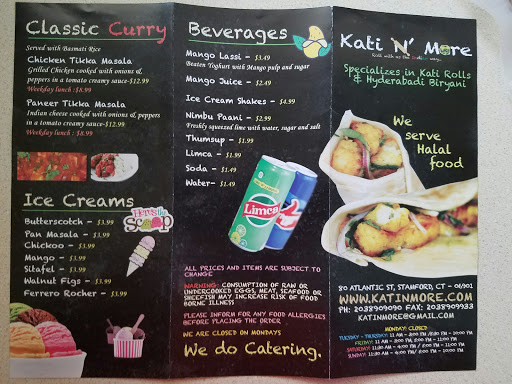 Classic Curry
Served with Basmati Rice
Chicken Tikka Masala
Grilled Chicken cooked with onions &
peppers in a tomato creamy sauce-$12.99
Weekday lunch :$8.99
Paneer Tikka Masala
Indian cheese cooked with onions & peppers
in a tomato creamy sauce-$12.99
Weekday lunch : $8.99
Ice Creams
Here's the
Scoop
Butterscotch - $3.99
Pan Masala - $3.99
Chickoo - $3.99
Mango - $3.99
Sitafel - $3.99
Walnut Figs - $3.99
Ferrero Rocher - $3.99
Beverages
Mango Lassi - $3.49
Beaten Yoghurt with Mango pulp and sugar
Mango Juice - $2.49
Ice Cream Shakes - $4.99
Nimbu Paani - $2.99
Freshly squeezed lime with water, sugar and salt
Thumsup - $1.99
Limca - $1.99
Soda - $1.49
Water- $1.49
Limca
ALL PRICES AND ITEMS ARE SUBJECT TO
CHANGE
WARNING: CONSUMPTION OF RAW OR
UNDERCOOKED EGGS, MEAT, SEAFOOD OR
SHEEFISH MAY INCREASE RISK OF FOOD
BORNE ILLNESS
PLEASE INFORM FOR ANY FOOD ALLERGIES
BEFORE PLACING THE ORDER
WE ARE CLOSED ON MONDAYS
We do Catering.
Kati N' More
Roll with us the way..
Specializes in Kati Rolls
& Hyderabadi Biryani
We
serve
Halal
food
80 ATLANTIC ST, STAMFORD, CT - 06901
WWW.KATINMORE.COM
PH: 2038909090 FAX: 2038909933
KATINMORE@GMAIL.COM
MONDAY: CLOSED
TUESDAY - THURSDAY: 11 AM - 3:00 PM /5:30 PM - 10:00 PM
FRIDAY: 11 AM - 3:00 PM, 5:30 PM - 10:00 PM
SATURDAY: 11:30 AM - 4:00 PM / 5:30 PM - 10:00 PM
SUNDAY: 11:30 AM - 4:00 PM / 5:30 PM - 10:00 PM